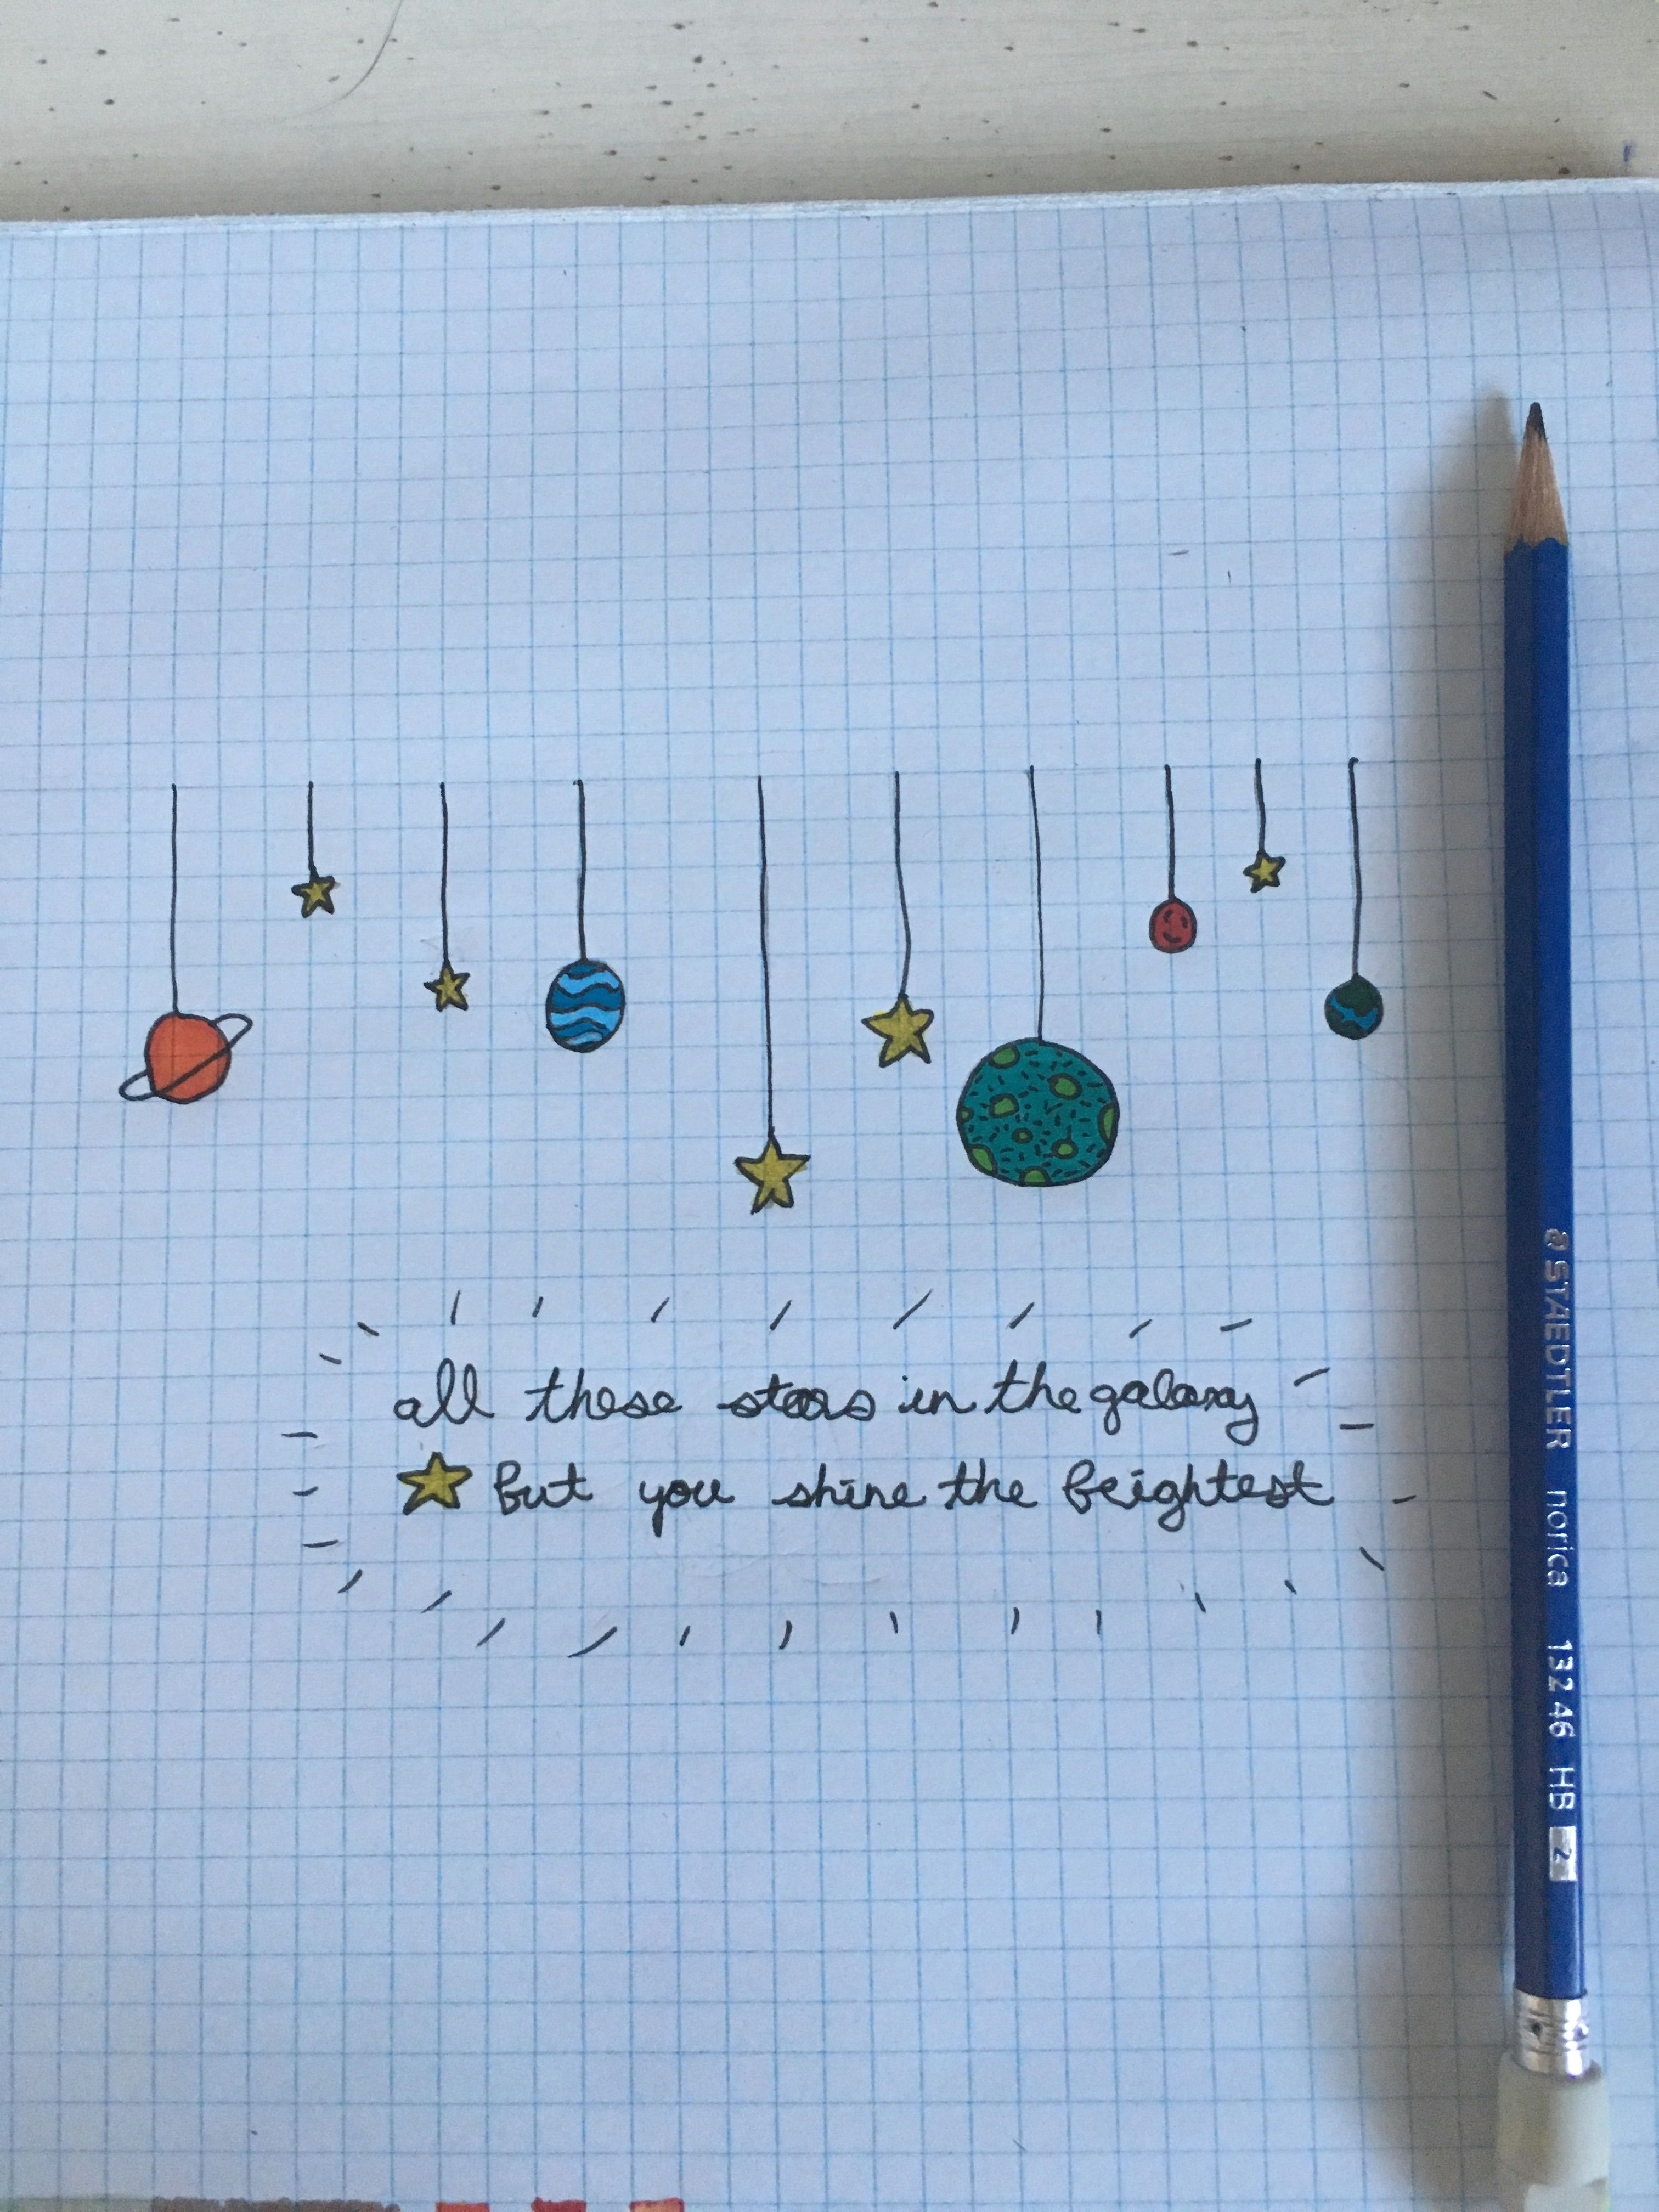 all these stars in the galaxy
but you shine the brightest
STAEDTLER norica 132 46 HB 2